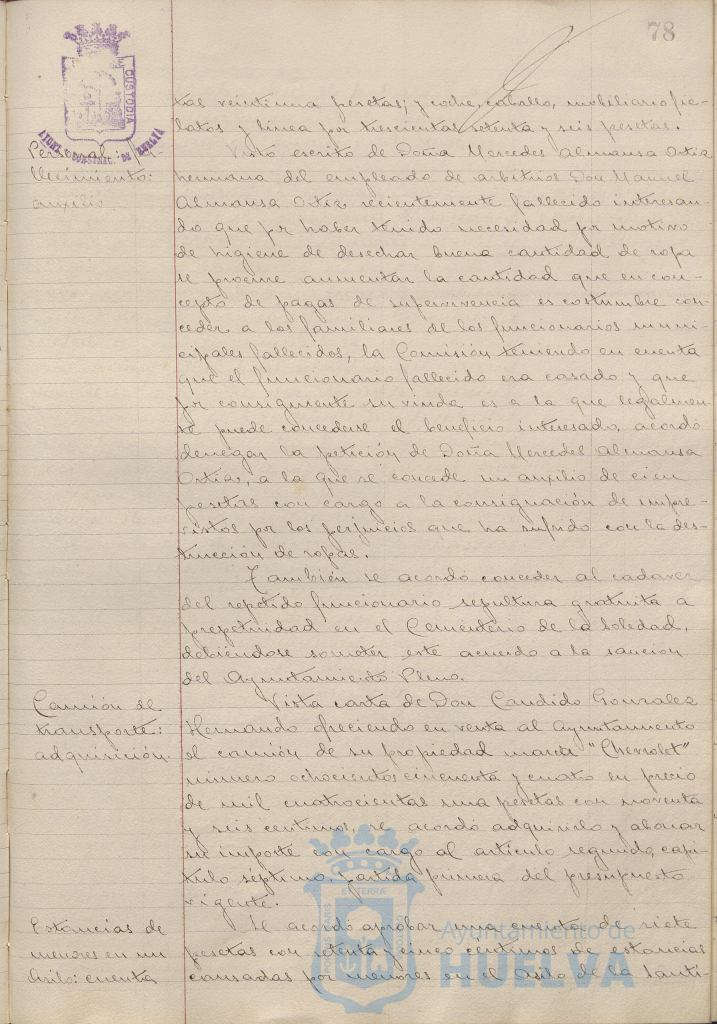 78
CUSTODIA
tas veintiuna pesetas; y coche, caballo, mobiliario fie-
latos y línea por trescientas setenta y seis pesetas.
Personal:
llecimiento:
auxilio
Visto escrito de Doña Mercedes Almansa Ortiz
hermana del empleado de arbitrios Don Manuel
Almansa Ortiz, recientemente fallecido interesan-
do que por haber tenido necesidad por motivo
de higiene de desechar buena cantidad de ropa
se procure aumentar la cantidad que en con-
cepto de pagas de supervivencia es costumbre con-
ceder a los familiares de los funcionarios muni-
cipales fallecidos, la Comisión teniendo en cuenta
que el funcionario fallecido era casado y que
por consiguiente su viuda es a la que legalmen-
te puede concederse el beneficio interesado, acordó
denegar la petición de Doña Mercedes Almansa
Ortiz, a la que se concede un auxilio de cien
pesetas con cargo a la consignación de impre-
vistos por los perjuicios que ha sufrido con la des-
trucción de ropas.
También se acordó conceder al cadaver
del repetido funcionario sepultura gratuita a
perpetuidad en el Cementerio de la Soledad,
debiéndose someter este acuerdo a la sanción
del Ayuntamiento Pleno.
Camión de
transporte:
adquisición.
Vista carta de Don Candido Gonzalez
Hernando ofreciendo en venta al Ayuntamiento
el camión de su propiedad marca "Chevrolet"
número ochocientos cincuenta y cuatro en precio
de mil cuatrocientas una pesetas con noventa
y seis centimos, se acordó adquirirlo y abonar
su importe con cargo al artículo segundo, capí-
tulo séptimo, partida primera del presupuesto
vigente.
Estancias de
menores en un
Asilo: cuenta
Se acordó aprobar una cuenta de siete
pesetas con setenta y cinco céntimos de estancias
causadas por menores en el Asilo de la Santi-
Ayuntamiento de
HUELVA